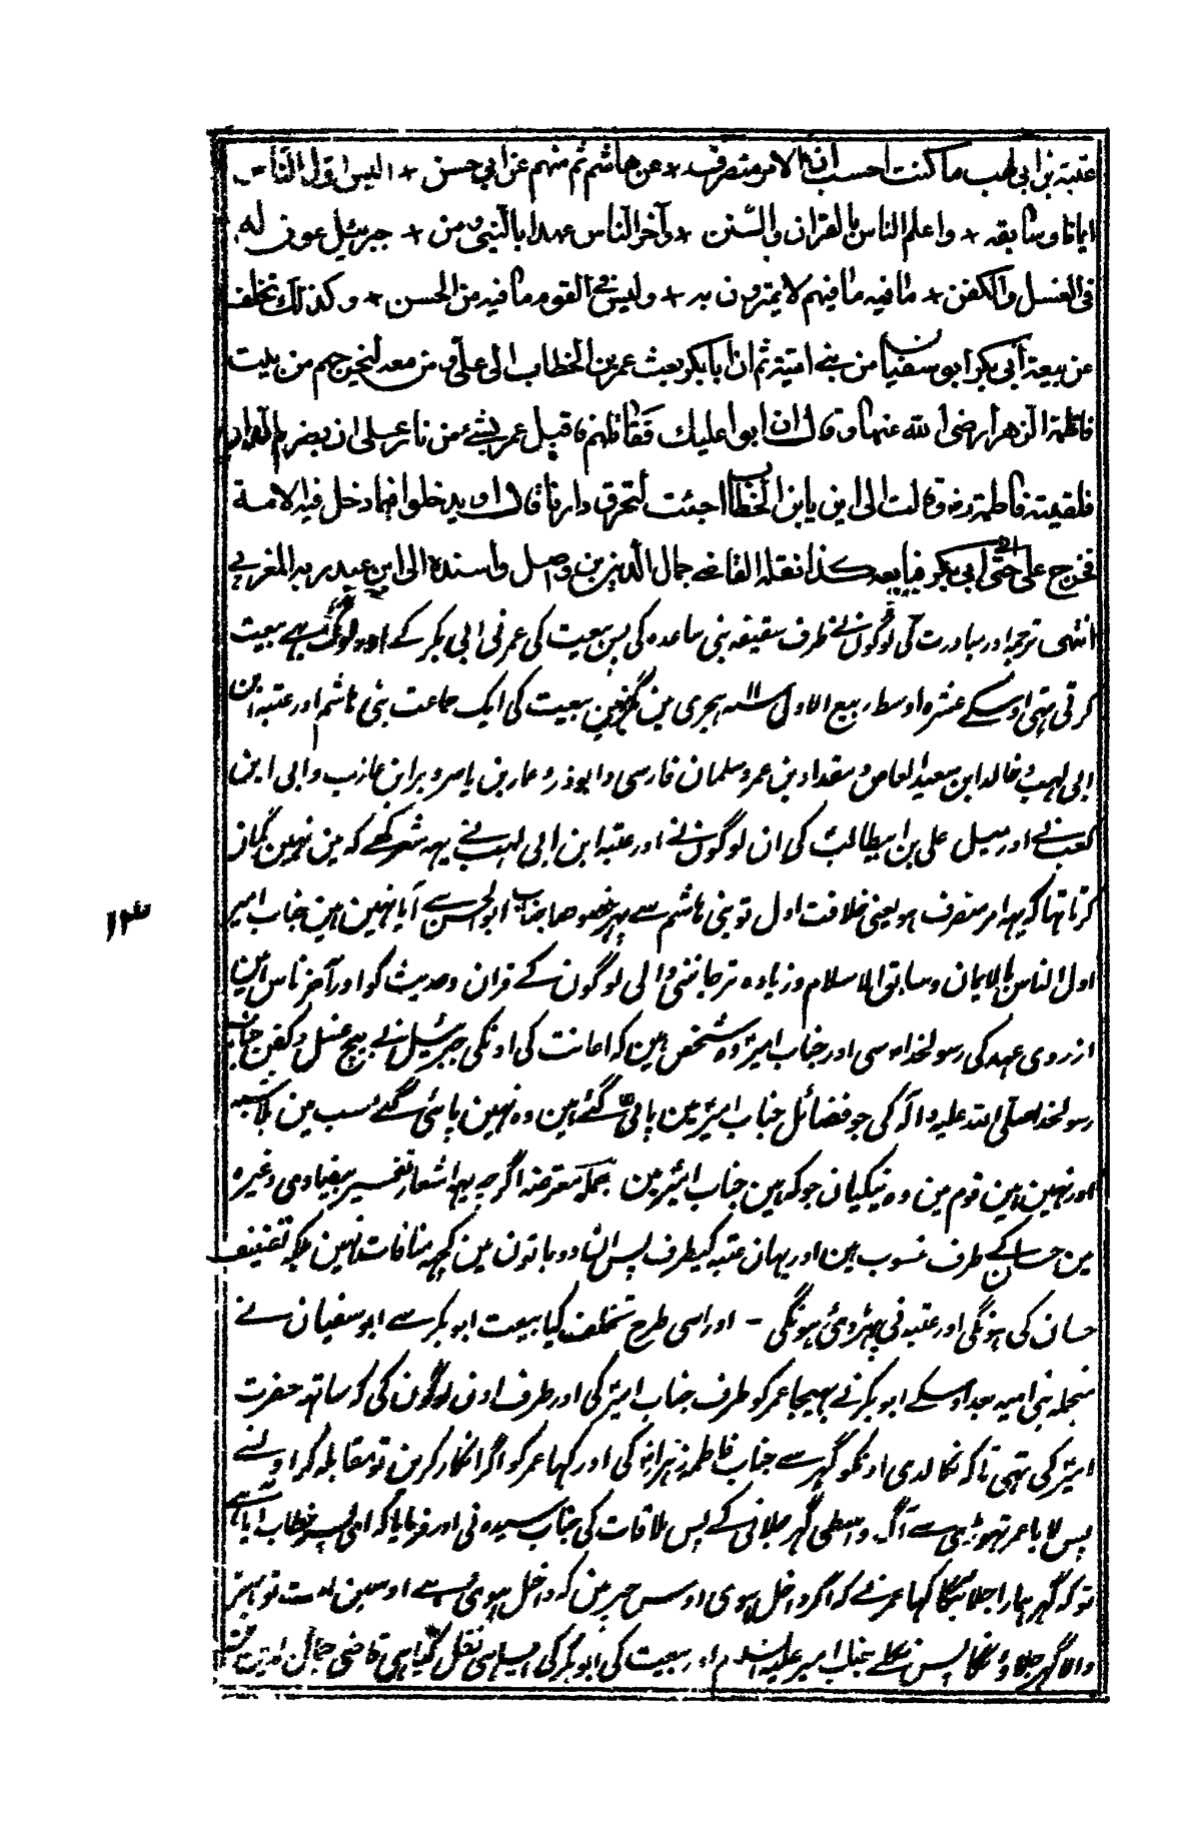 عتبة بن ابي لهب ما كنت احسب ان الامر منصرف + عن هاشم ثم منهم عن ابي حسن + اليس اول الناس
ايمانا وسابقه + واعلم الناس بالقران والسنن + وآخر الناس عهدا بالنبي ومن + جبرئيل عون له
في الغسل والكفن + ما فيه ما فيهم لا يمترون به + وليس في القوم ما فيه من الحسن + وكذلك تخلف
عن بيعة ابي بكر ابو سفيان من بني امية ثم ان ابا بكر بعث عمر بن الخطاب الى علي ومن معه ليخرجهم من بيت
فاطمة الزهرا رضى الله عنها وقال ان ابوا عليك فقاتلهم فاقبل عمر بشئ من نار على ان يضرم الدار
فلقيته فاطمة رض وقالت الى اين يا بن الخطاب اجئت لتحرق دارنا قال او يدخلوا فيما دخل فيه الامة
فخرج علي حتى اتى ابي بكر فبايعه كذا نقله القاضي جمال الدين بن واصل واسنده الى ابن عبد ربه المغربي
انتهى ترجمه اور مبادرت کی لوگون نے طرف سقیفہ بنی ساعدہ کی پس بیعت کی عمر نی ابی بکر کے اور لوگ بہی بیعت
کرتی تہی اوسکے عشرہ اوسط ربیع الاول سنہ ۱۱ ہجری مین مگر نہین بیعت کی ایک جماعت بنی ہاشم اور عتبہ ابن
ابی لہب و خالد ابن سعید العاص و مقداد بن عمر و سلمان فارسی و ابوذر و عمار بن یاسر و براء بن عازب و ابی ابن
کعب نے اور میل علی بن ابیطالب کی ان لوگون نے اور عتبہ ابن ابی لہب نے یہہ شعر کہے کہ مین نہین گمان
کرتا تہا کہ یہہ امر منصرف ہو یعنی خلافت اول تو بنی ہاشم سے پہر خصوصا جناب ابو الحسن سے آیا نہین ہین جناب امیر
اول الناس بالایمان و سابق الاسلام و زیادہ تر جاننی والی لوگون کے قران و حدیث کو اور آخر ناس ہین
از روی عہد کی رسولخدا سی اور جناب امیر وہ شخص ہین کہ اعانت کی اونکی جبرئیل نے بیچ غسل و کفن جناب
رسولخدا صلی اللہ علیہ وآلہ کی جو فضائل جناب امیر مین پائی گئے ہین وہ نہین پائی گئے سب مین بلاشبہ
اور نہین ہین قوم مین وہ نیکیان جو کہ ہین جناب امیر مین جملہ معترضہ اگرچہ یہہ اشعار تفسیر بیضاوی وغیرہ
مین حسان کے طرف منسوب ہین اور یہان عتبہ کیطرف پس ان دو باتون مین کچہہ منافات نہین بلکہ تصنیف
حسان کی ہونگی اور عتبہ نی پڑہی ہونگی - اور اسی طرح تخلف کیا بیعت ابو بکر سے ابو سفیان نے
منجملہ بنی امیہ بعد اوسکے ابو بکر نے بہیجا عمر کو طرف جناب امیر کی اور طرف اون لوگون کی کہ ساتہ حضرت
امیر کی تہی تاکہ نکالدی اونکو گہر سے جناب فاطمہ زہرا کی اور کہا عمر کو اگر انکار کرین تو مقابلہ کر اونسے
پس لایا عمر تہوڑی سے آگ واسطی گہر جلانی کے پس ملاقات کی جناب سیدہ نی اور فرمایا کہ ای پسر خطاب آیا ہی
تو کہ گہر ہمارا جلائیگا کہا عمر نے کہ اگر داخل ہوی اوس چیز مین کہ داخل ہوئی ہے اوسمین امت تو بہتر
والا گہر جلاوٗنگا پس نکلے جناب امیر علیہ السلام اور بیعت کی ابو بکر کی ایسا ہی نقل کیا ہی قاضی جمال الدین
۱۳